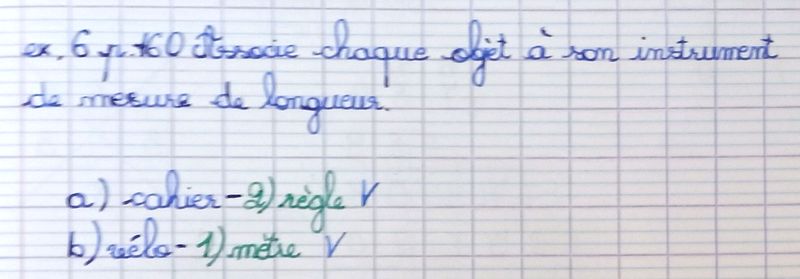 ex. 6 p. 160 Associe chaque objet à son instrument
de mesure de longueur.
a) cahier - 2) règle V
b) vélo - 1) mètre V